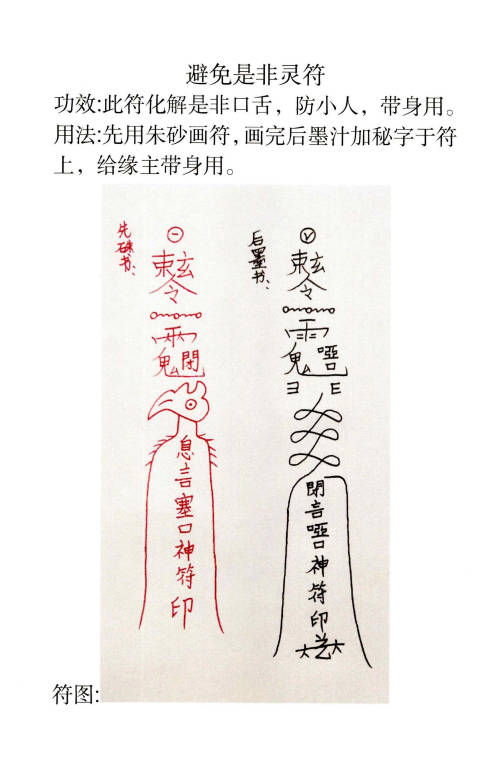 避免是非灵符
功效:此符化解是非口舌，防小人，带身用。
用法:先用朱砂画符,画完后墨汁加秘字于符
上，给缘主带身用。
先硃书:
息言塞口神符印
后墨书:
閉言啞口神符印
符图: